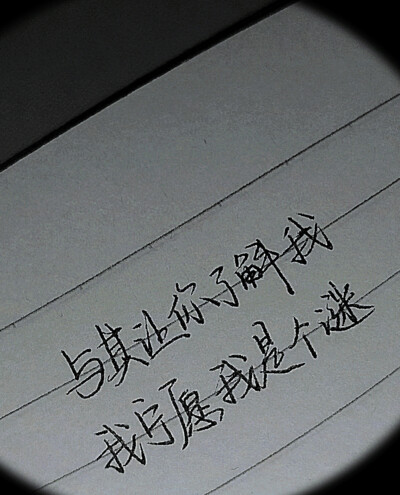 与其让你了解我
我宁愿我是个谜